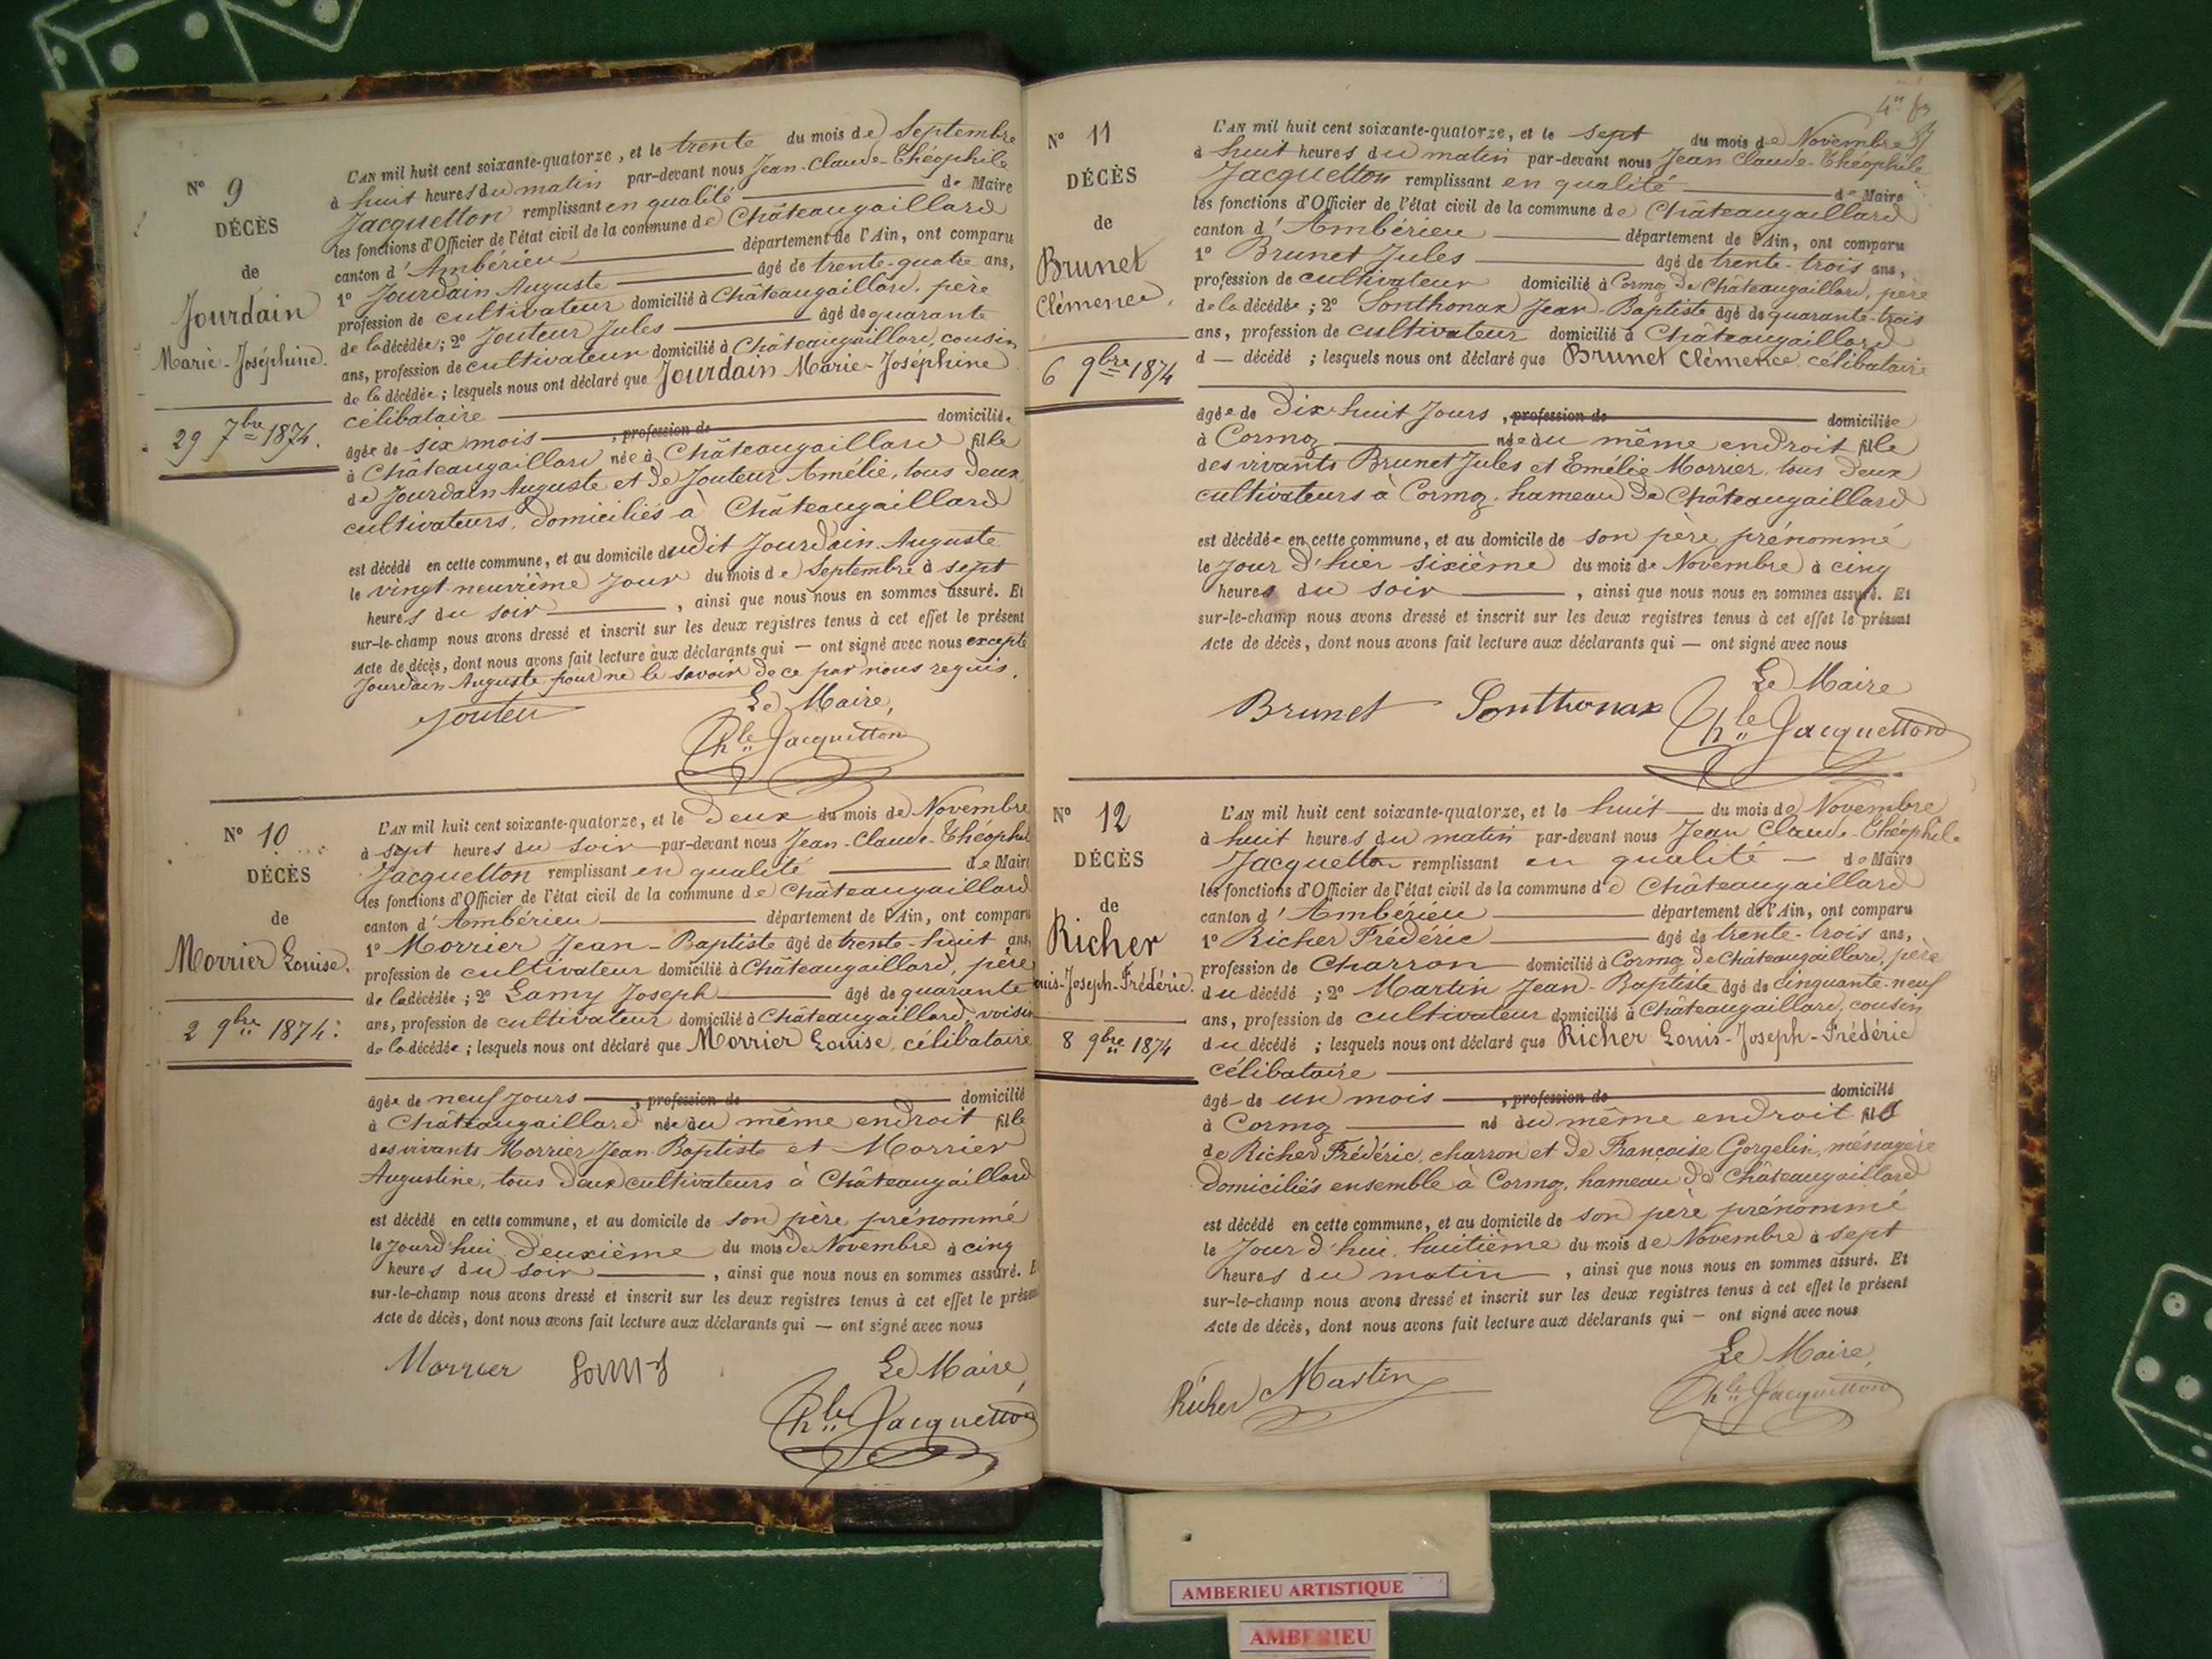 N° 9
DÉCÈS
de
Jourdain
Marie-Joséphine.
29 7bre 1874.
L'AN mil huit cent soixante-quatorze, et le trente du mois de Septembre
à huit heures du matin par-devant nous Jean-Claude-Théophile
Jacquetton remplissant en qualité de Maire
les fonctions d'Officier de l'état civil de la commune de Châteaugaillard
canton d'Ambérieu département de l'Ain, ont comparu
1° Jourdain Auguste âgé de trente-quatre ans,
profession de cultivateur domicilié à Châteaugaillard, père
de la décédée ; 2° Jouteur Jules âgé de quarante
ans, profession de cultivateur domicilié à Châteaugaillard, cousin
de la décédée ; lesquels nous ont déclaré que Jourdain Marie-Joséphine
célibataire
âgée de six mois , profession de domiciliée
à Châteaugaillard née à Châteaugaillard fille
de Jourdain Auguste et de Jouteur Amélie, tous deux
cultivateurs, domiciliés à Châteaugaillard
est décédé en cette commune, et au domicile dudit Jourdain Auguste
le vingt neuvième jour du mois de Septembre à sept
heures du soir , ainsi que nous nous en sommes assuré. Et
sur-le-champ nous avons dressé et inscrit sur les deux registres tenus à cet effet le présent
Acte de décès, dont nous avons fait lecture aux déclarants qui — ont signé avec nous excepté
Jourdain Auguste pour ne le savoir de ce par nous requis.
Le Maire,
Jouteur
Thle Jacquetton
N° 10
DÉCÈS
de
Morrier Louise.
2 9bre 1874.
L'AN mil huit cent soixante-quatorze, et le Deux du mois de Novembre
à sept heures du soir par-devant nous Jean-Claude-Théophile
Jacquetton remplissant en qualité de Maire
les fonctions d'Officier de l'état civil de la commune de Châteaugaillard
canton d'Ambérieu département de l'Ain, ont comparu
1° Morrier Jean-Baptiste âgé de trente-huit ans,
profession de cultivateur domicilié à Châteaugaillard, père
de la décédée ; 2° Lamy Joseph âgé de quarante
ans, profession de cultivateur domicilié à Châteaugaillard, voisin
de la décédée ; lesquels nous ont déclaré que Morrier Louise, célibataire
âgée de neuf jours , profession de domicilié
à Châteaugaillard née au même endroit fille
des vivants Morrier Jean Baptiste et Morrier
Augustine, tous deux cultivateurs à Châteaugaillard
est décédé en cette commune, et au domicile de son père prénommé
le jourd'hui deuxième du mois de Novembre à cinq
heures du soir , ainsi que nous nous en sommes assuré. E
sur-le-champ nous avons dressé et inscrit sur les deux registres tenus à cet effet le présent
Acte de décès, dont nous avons fait lecture aux déclarants qui — ont signé avec nous
Le Maire,
Morrier
Thle Jacquetton
N° 11
DÉCÈS
de
Brunet
Clémence.
6 9bre 1874
L'AN mil huit cent soixante-quatorze, et le sept du mois de Novembre
à huit heures du matin par-devant nous Jean Claude-Théophile
Jacquetton remplissant en qualité de Maire
les fonctions d'Officier de l'état civil de la commune de Châteaugaillard
canton d'Ambérieu département de l'Ain, ont comparu
1° Brunet Jules âgé de trente-trois ans,
profession de cultivateur domicilié à Cormoz de Châteaugaillard, père
de la décédée ; 2° Sonthonax Jean-Baptiste âgé de quarante-trois
ans, profession de cultivateur domicilié à Châteaugaillard
d — décédé ; lesquels nous ont déclaré que Brunet Clémence célibataire
âgée de Dix-huit jours , profession de domiciliée
à Cormoz née au même endroit fille
des vivants Brunet Jules et Emélie Morrier, tous deux
cultivateurs à Cormoz, hameau de Châteaugaillard
est décédée en cette commune, et au domicile de son père prénommé
le jour d'hier sixième du mois de Novembre à cinq
heures du soir , ainsi que nous nous en sommes assuré. Et
sur-le-champ nous avons dressé et inscrit sur les deux registres tenus à cet effet le présent
Acte de décès, dont nous avons fait lecture aux déclarants qui — ont signé avec nous
Le Maire
Brunet Sonthonax
Thle Jacquetton
N° 12
DÉCÈS
de
Richer
ouis-Joseph-Frédéric.
8 9bre 1874
L'AN mil huit cent soixante-quatorze, et le huit du mois de Novembre
à huit heures du matin par-devant nous Jean Claude-Théophile
Jacquetton remplissant en qualité — de Maire
les fonctions d'Officier de l'état civil de la commune de Châteaugaillard
canton d'Ambérieu département de l'Ain, ont comparu
1° Richer Frédéric âgé de trente-trois ans,
profession de Charron domicilié à Cormoz de Châteaugaillard, père
du décédé ; 2° Martin Jean-Baptiste âgé de cinquante-neuf
ans, profession de cultivateur domicilié à Châteaugaillard, cousin
du décédé ; lesquels nous ont déclaré que Richer Louis-Joseph-Frédéric
célibataire
âgé de un mois , profession de domicilié
à Cormoz né au même endroit fils
de Richer Frédéric, charron et de Françoise Gorgelin, ménagère
domiciliés ensemble à Cormoz, hameau de Châteaugaillard
est décédé en cette commune, et au domicile de son père prénommé
le Jour d'hui, huitième du mois de Novembre à sept
heures du matin , ainsi que nous nous en sommes assuré. Et
sur-le-champ nous avons dressé et inscrit sur les deux registres tenus à cet effet le présent
Acte de décès, dont nous avons fait lecture aux déclarants qui — ont signé avec nous
Le Maire,
Richer Martin
Thle Jacquetton
AMBERIEU ARTISTIQUE
AMBERIEU